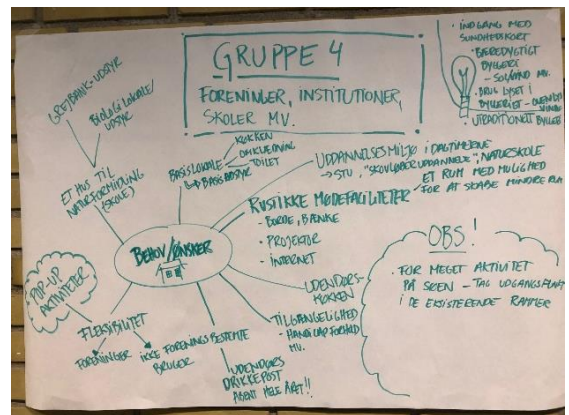 GRUPPE 4
FORENINGER, INSTITUTIONER,
SKOLER MV.
• INDGANG MED
SUNDHEDSKORT
• BÆREDYGTIGT
BYGGERI
- SOL/VIND MV.
• BRUG LYSET I
BYGGERIET - OVENLYS
VINDUE
• UTRADITIONELT BYGGERI
GREJBANK-UDSTYR
BIOLOGILOKALE/
UDSTYR
ET HUS TIL
NATURFORMIDLING
(SKOLE)
BASISLOKALE
KØKKEN
OMKLÆDNING
TOILET
BASISUDSTYR
UDDANNELSESMILJØ I DAGTIMERNE
→ STU, "SKOVLØBER UDDANNELSE", NATURSKOLE
RUSTIKKE MØDEFACILITETER
ET RUM MED MULIGHED
FOR AT SKABE MINDRE RUM
- BORDE, BÆNKE
• PROJEKTOR
- INTERNET
BEHOV/ØNSKER
UDENDØRS-
KØKKEN
TILGÆNGELIGHED
- HANDICAPFORHOLD
MV.
UDENDØRS
DRIKKEPOST
ÅBENT HELE ÅRET!!
FLEKSIBILITET
FORENINGER
IKKE FORENINGSBESTEMTE
BRUGER
POP-UP
AKTIVITETER
OBS!
• FOR MEGET AKTIVITET
PÅ SØEN - TAG UDGANGSPUNKT
I DE EKSISTERENDE RAMMER